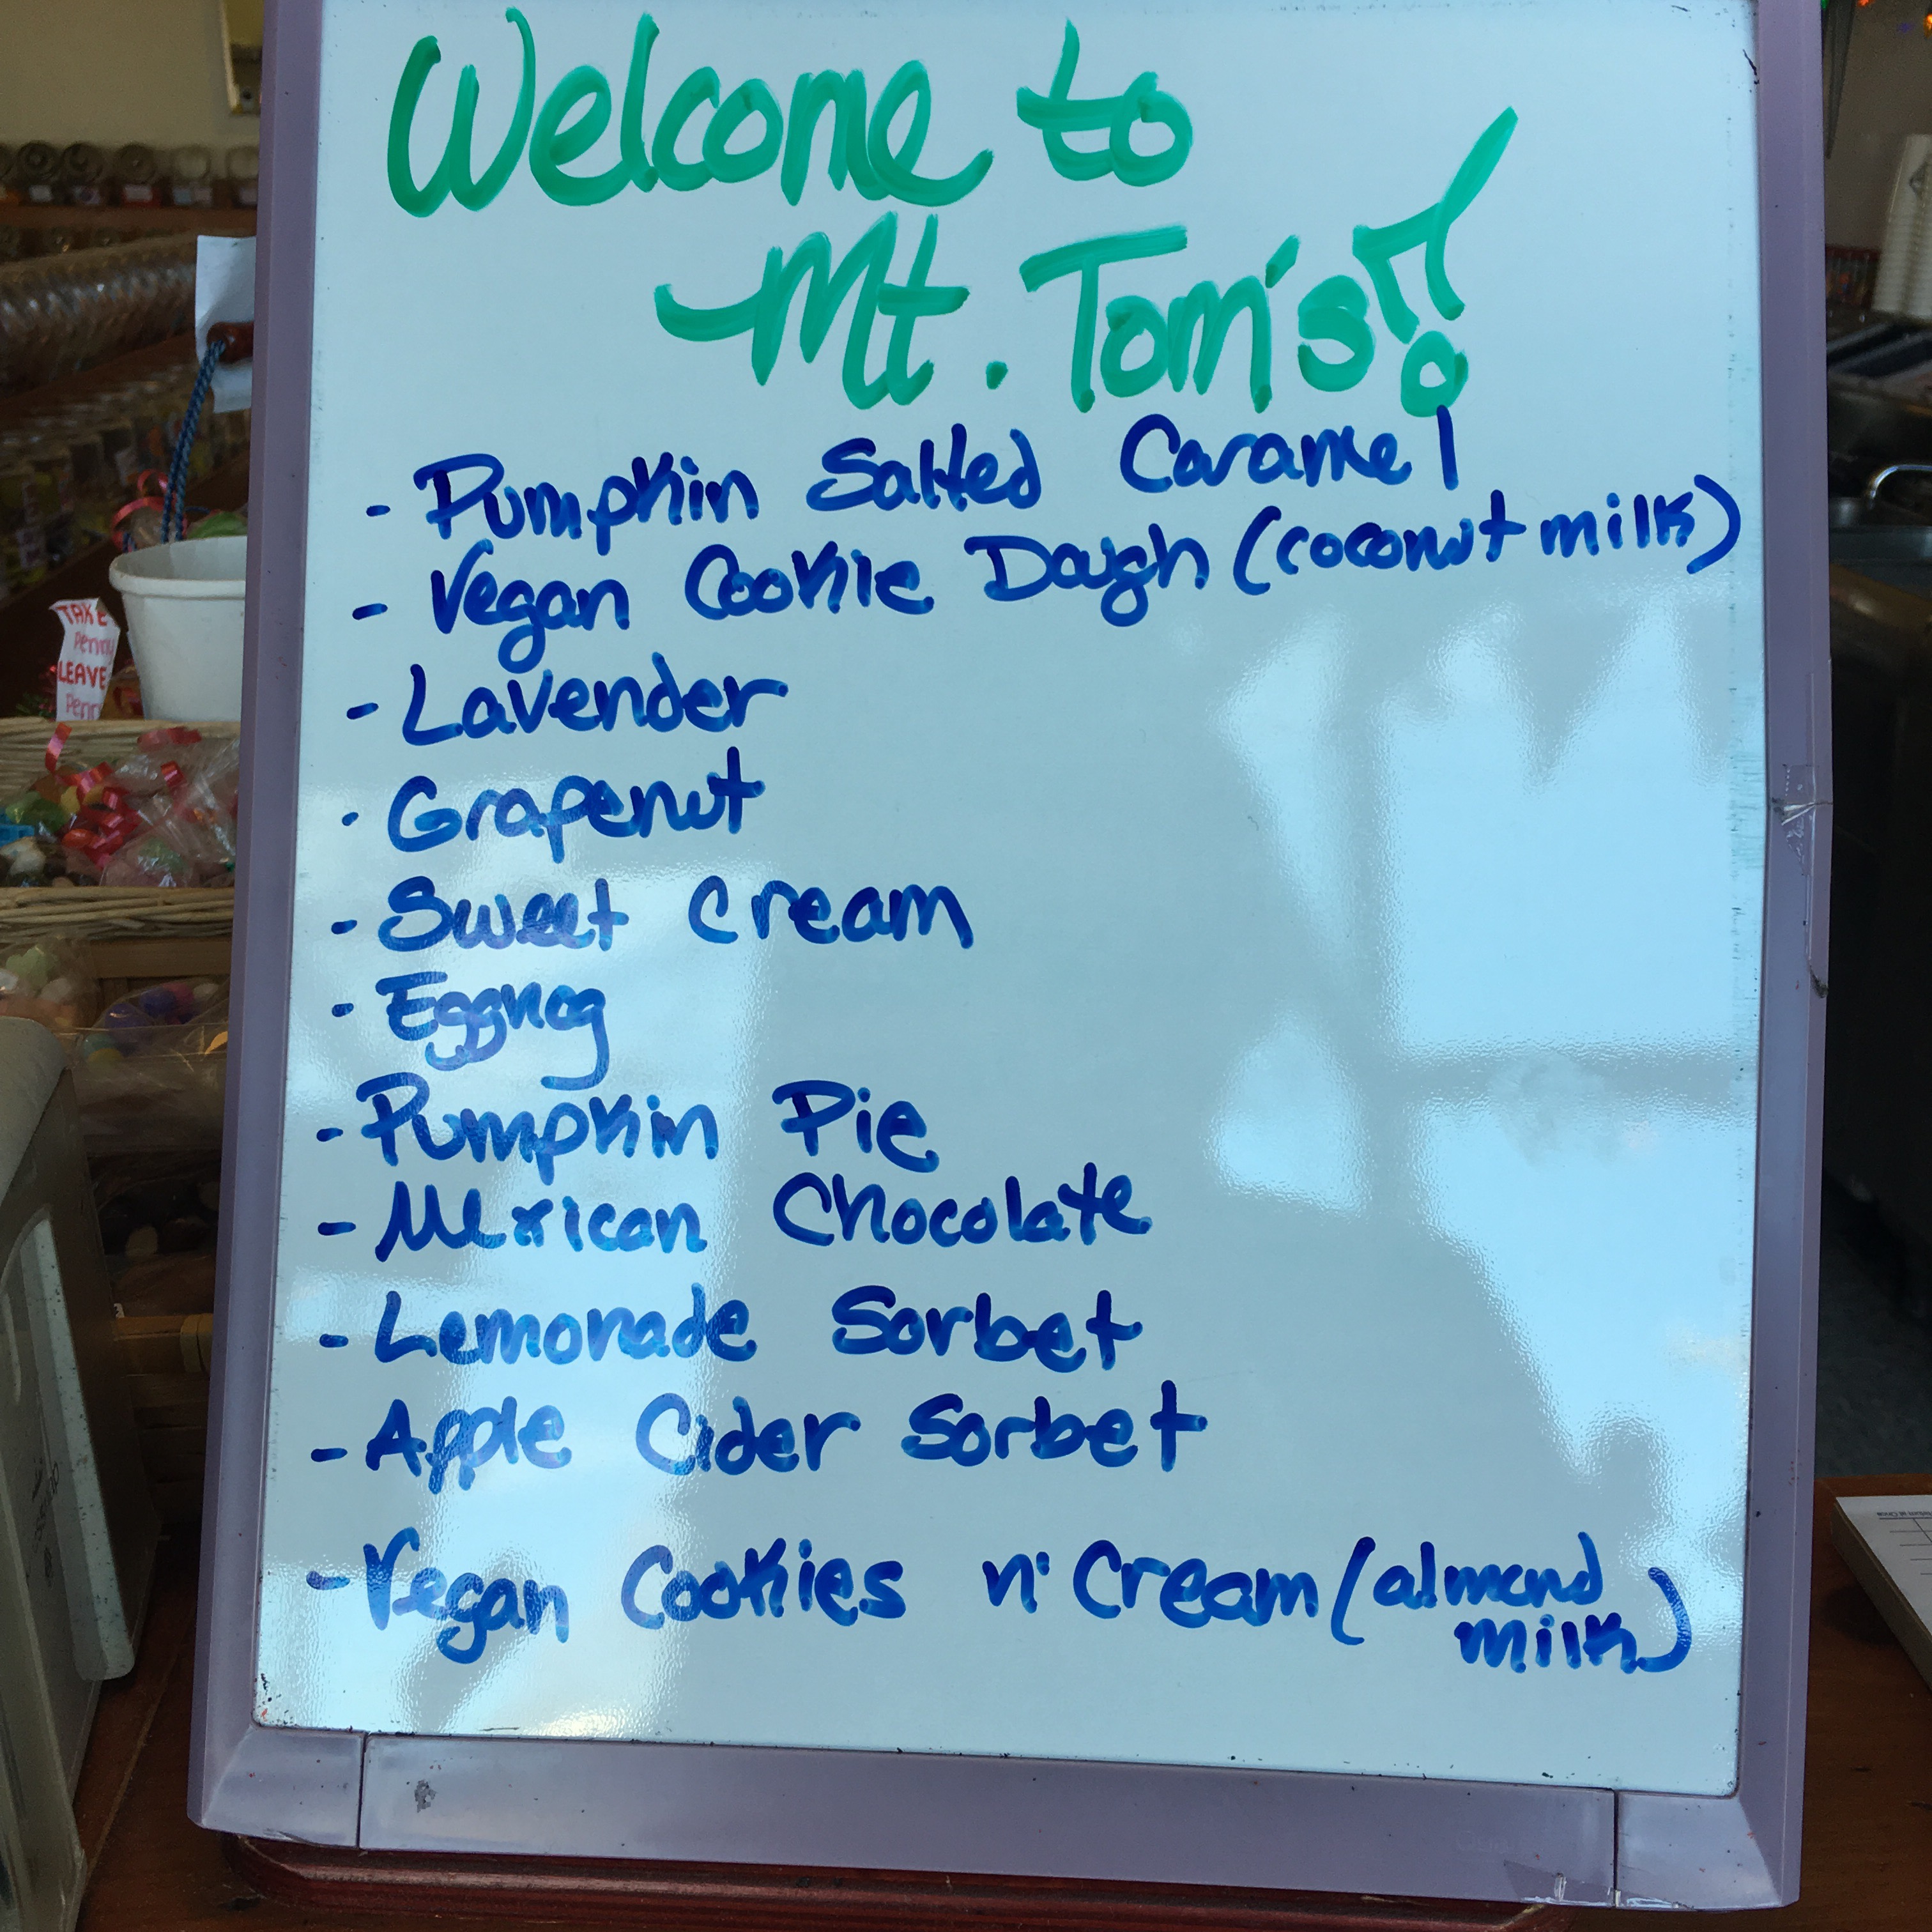 Welcome to
Mt. Tom's!
- Pumpkin Salted Caramel
- Vegan Cookie Dough (coconut milk)
- Lavender
- Grapenut
- Sweet Cream
- Eggnog
- Pumpkin Pie
- Mexican Chocolate
- Lemonade Sorbet
- Apple Cider Sorbet
- Vegan Cookies n' Cream (almond
milk)
TAKE
Penny
LEAVE